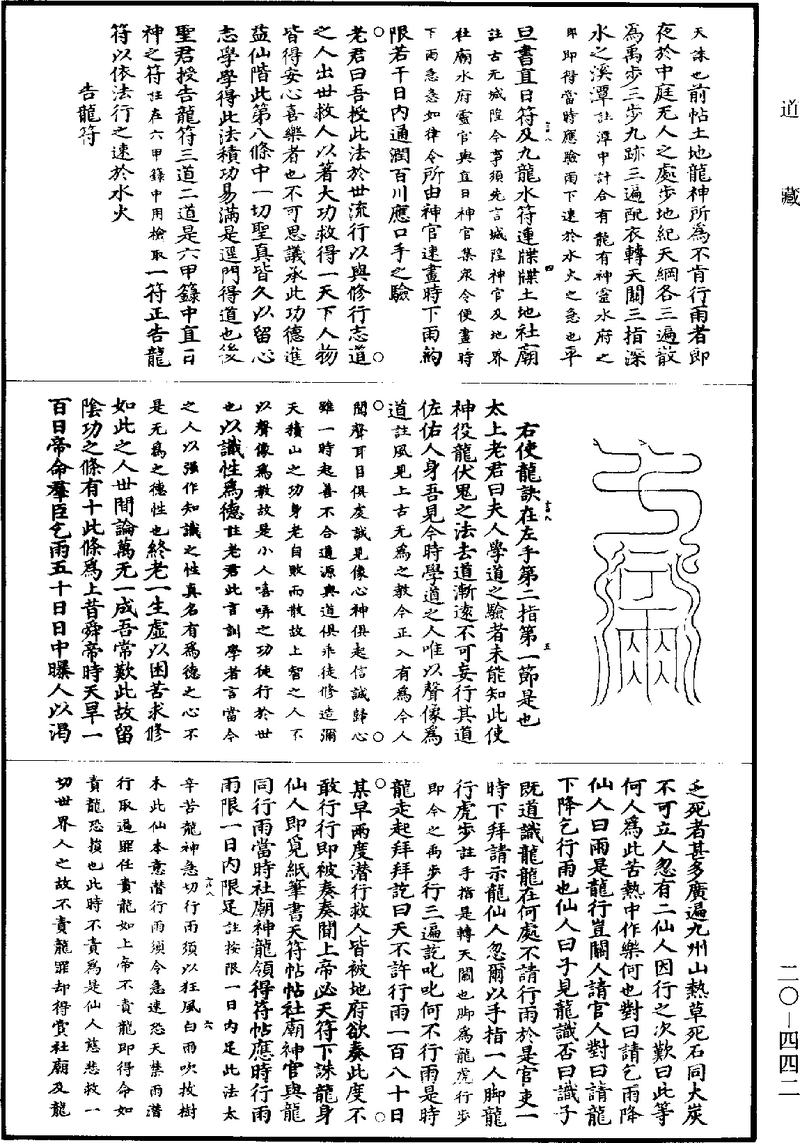 道藏
天誅也前帖土地龍神所為不肯行雨者即
夜於中庭无人之處步地紀天綱各三遍散
為禹步三步九跡三遍配衣轉天關三指深
水之溪潭註潭中計合有龍有神靈水府之
即即得當時應驗雨下速於水火之急也平
旦書直日符及九龍水符連牒牒土地社廟
註古无城隍今事須先言城隍神官及地界
社廟水府靈官與直日神官集眾令便晝時
下雨急急如律令所由神官速晝時下雨約
限若干日內通潤百川應口手之驗
老君曰吾授此法於世流行以與修行志道
之人出世救人以著大功救得一天下人物
皆得安心喜樂者也不可思議承此功德進
益仙階此第八條中一切聖真皆久以留心
志學學得此法積功易滿是選門得道也後
聖君授告龍符三道二道是六甲籙中直日
神之符註在六甲籙中用檢取一符正告龍
符以依法行之速於水火
告龍符
右使龍訣在左手第二指第一節是也
太上老君曰夫人學道之驗者未能知此使
神役龍伏鬼之法去道漸遠不可妄行其道
佐佑人身吾見今時學道之人唯以聲像為
道註風見上古无為之教今正入有為今人
聞聲耳目俱虔誠見像心神俱起信誠歸心
雖一時起善不合通源與道俱乖徒修造彌
天積山之功身老自敗而散故上智之人不
以聲像為教故是小人嘻哢之功徒行於世
也以識性為德註老君此言訓學者言當今
之人以強作知識之性真名有為德之心不
是无為之德性也終老一生虛以困苦求修
如此之人世間論萬无一成吾常歎此故留
陰功之條有十此條為上昔舜帝時天旱一
百日帝命羣臣乞雨五十日日中曝人以渴
乏死者甚多廣遍九州山熱草死石同大炭
不可立人忽有二仙人因行之次歎曰此等
何人為此苦熱中作樂何也對曰請乞雨降
仙人曰雨是龍行豈關人請官人對曰請龍
下降乞行雨也仙人曰子見龍識否曰識子
既道識龍龍在何處不請行雨於是官吏一
時下拜請示龍仙人忽爾以手指一人脚龍
行虎步註手指是轉天關也脚為龍虎行步
即今之禹步行三遍訖叱叱何不行雨是時
龍走起拜拜訖曰天不許行雨一百八十日
某早兩度潛行救人皆被地府欲奏此度不
敢行行即被奏奏聞上帝必天符下誅龍身
仙人即覓紙筆書天符帖帖社廟神官與龍
同行雨當時社廟神龍領得符帖應時行雨
雨限一日內限足註按限一日內足此法太
辛苦龍神急切行雨須以狂風白雨吹拔樹
木此仙本意潛行雨須令急速恐天禁雨潛
行取過罪任責龍如上帝不責龍即得命如
責龍恐損也此時不責為是仙人慈悲救一
切世界人之故不責龍罪却得賞社廟及龍
二〇—四四二